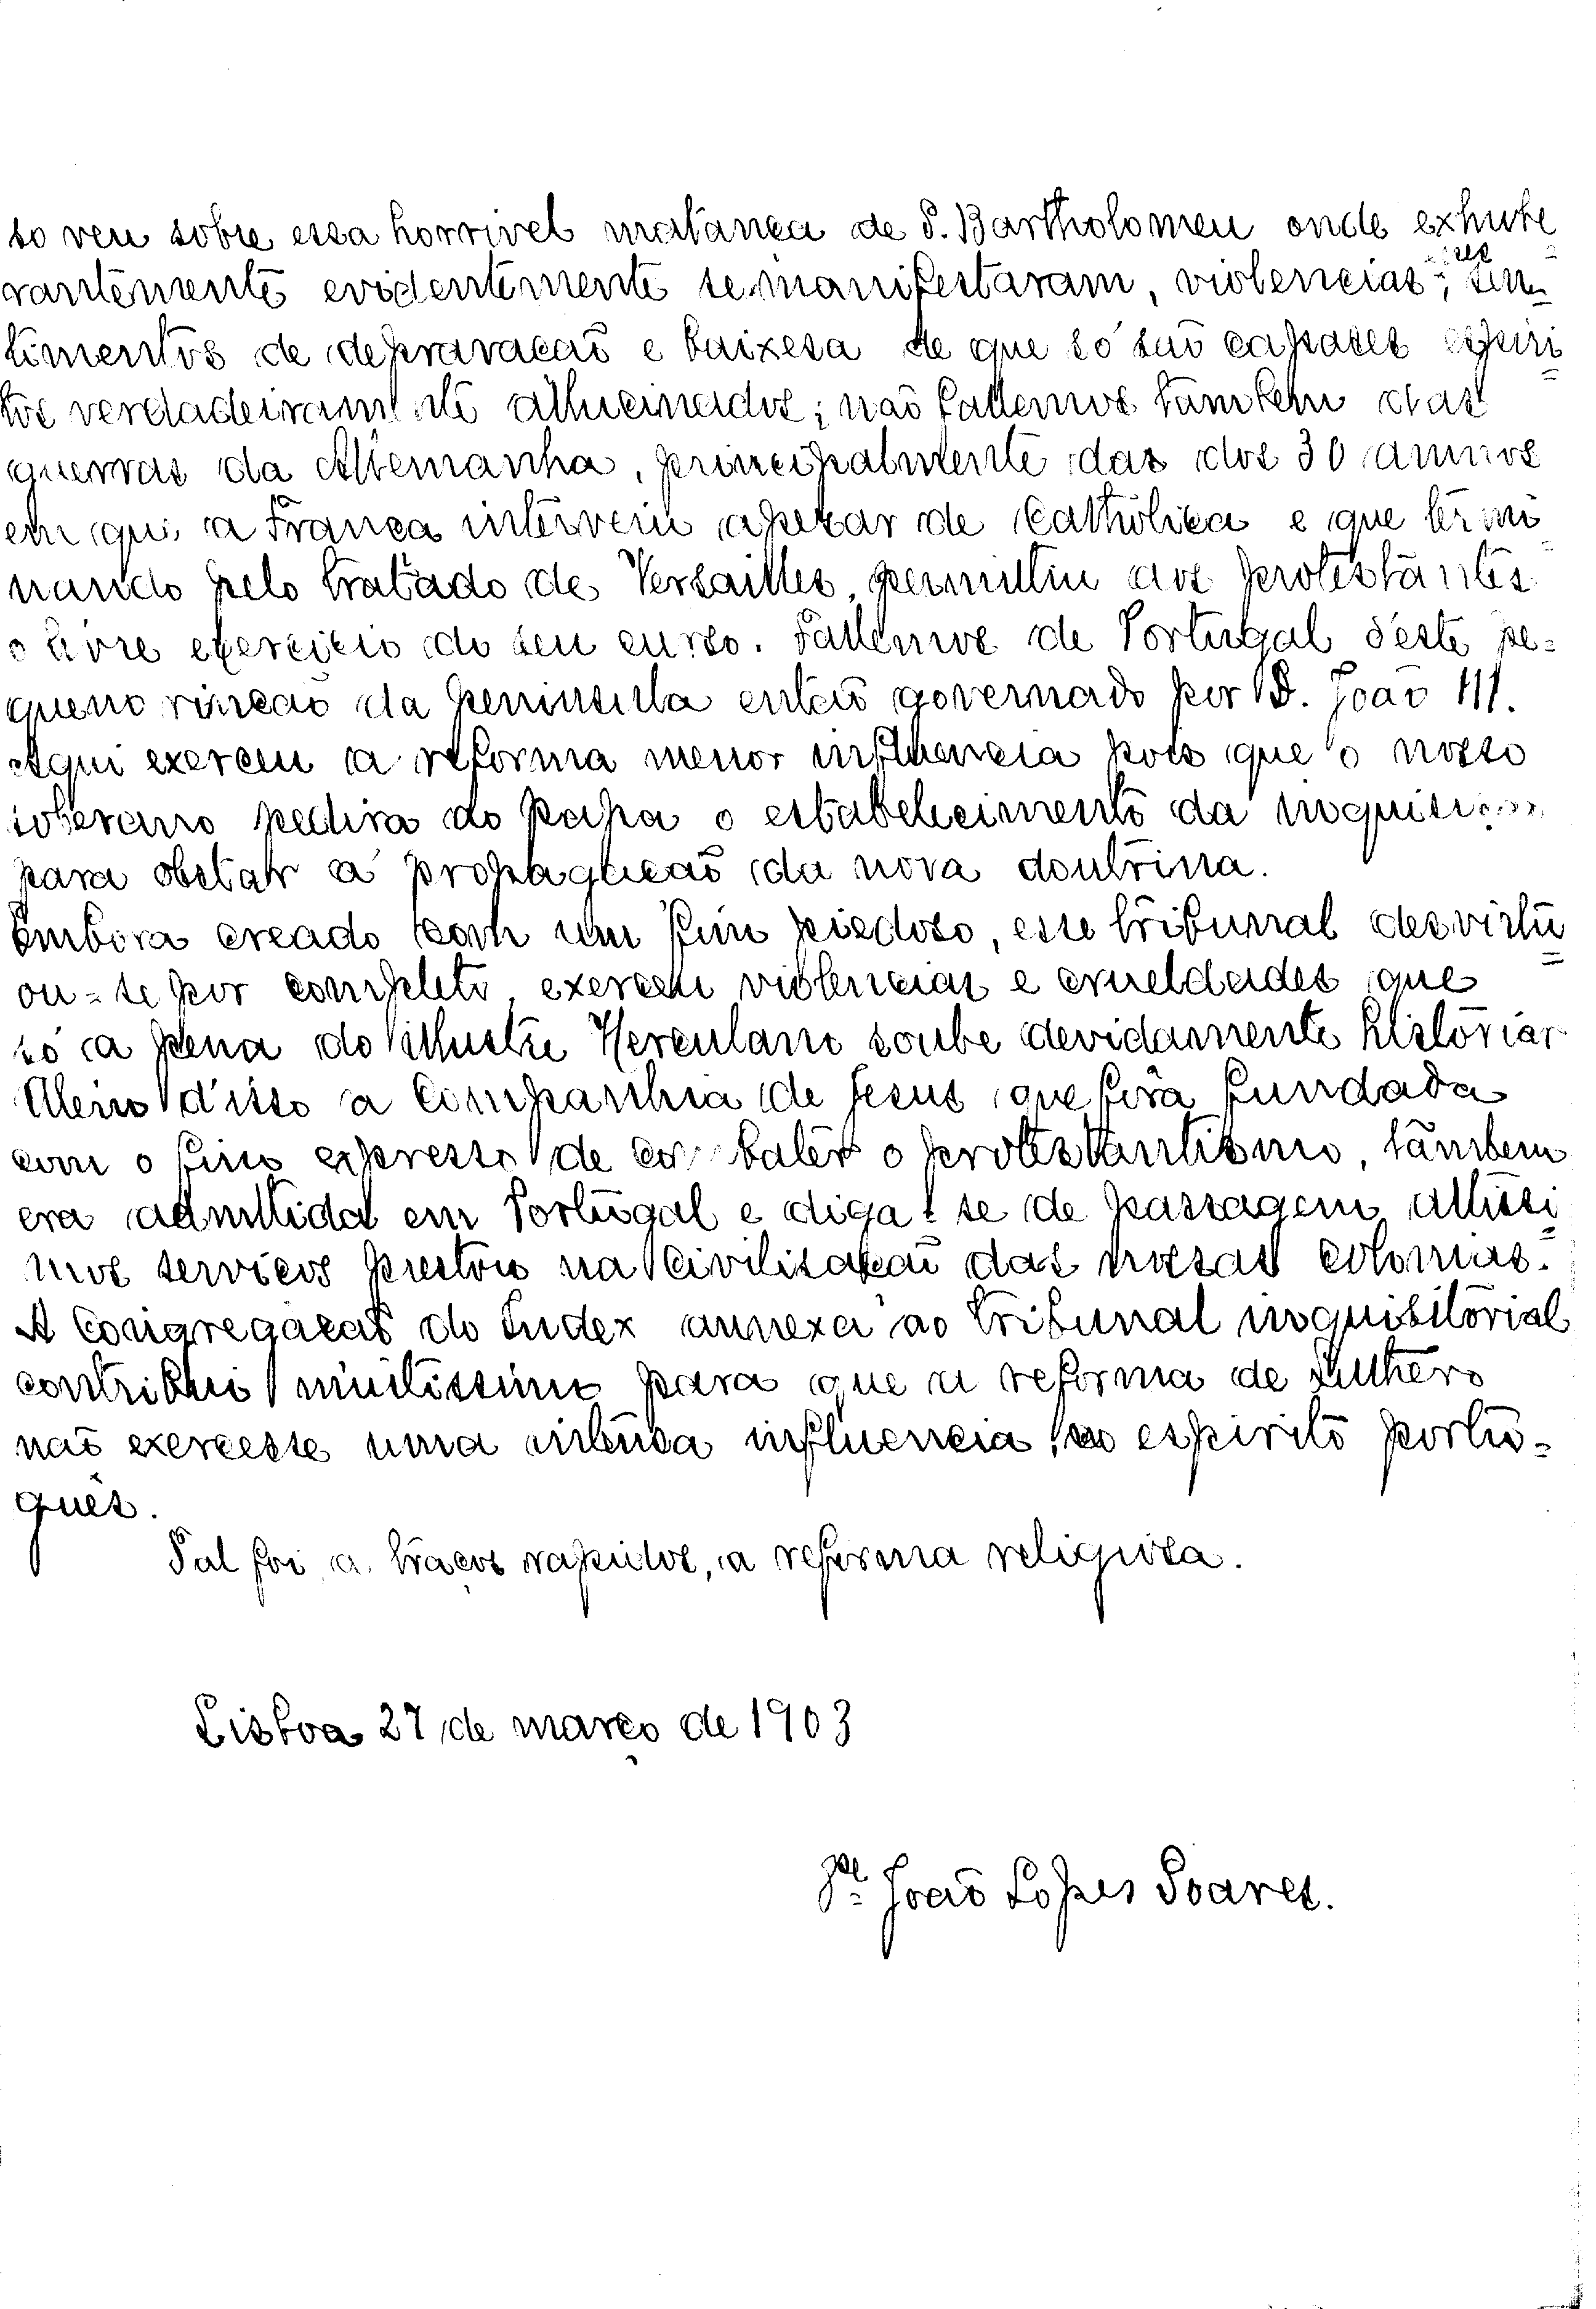 so veu sobre essa horrivel matança de S. Bartholomeu onde exhube
rantemente evidentemente se manifestaram, violencias, sen
timentos de depravação e baixesa de que só são capases espiri
tos verdadeiramente allucinados; não fallemos tambem das
guerras da Allemanha, principalmente das dos 30 annos
em que a França interveiu apezar de Catholica e que termi
nando pelo tratado de Versailles, permittiu aos protestantes
o livre exercicio do seu curso. Fallemos de Portugal d'este pe=
queno rincão da peninsula então governado por D. João III.
Aqui exerceu a reforma menor influencia pois que o nosso
soberano pedira ao papa o estabelecimento da inquisição
para obstar á propagação da nova doutrina.
Embora creado com um fim piedoso, esse tribunal desvirtu
ou=se por completo, exerceu violencias e crueldades que
só a pena do illustre Herculano soube devidamente historiar
Alem d'isso a Companhia de Jesus que fora fundada
com o fim expresso de combater o protestantismo, tambem
era admittida em Portugal e diga-se de passagem altissi
mos serviços prestou na civilisação das nossas colonias.
A Congregação do Index annexa ao tribunal inquisitorial
contribuiu muitissimo para que a reforma de Luthero
não exercesse uma intensa influencia no espirito portu=
guês.
Tal foi, a traços rapidos, a reforma religiosa.
Lisboa 27 de março de 1903
Pe. João Lopes Soares.